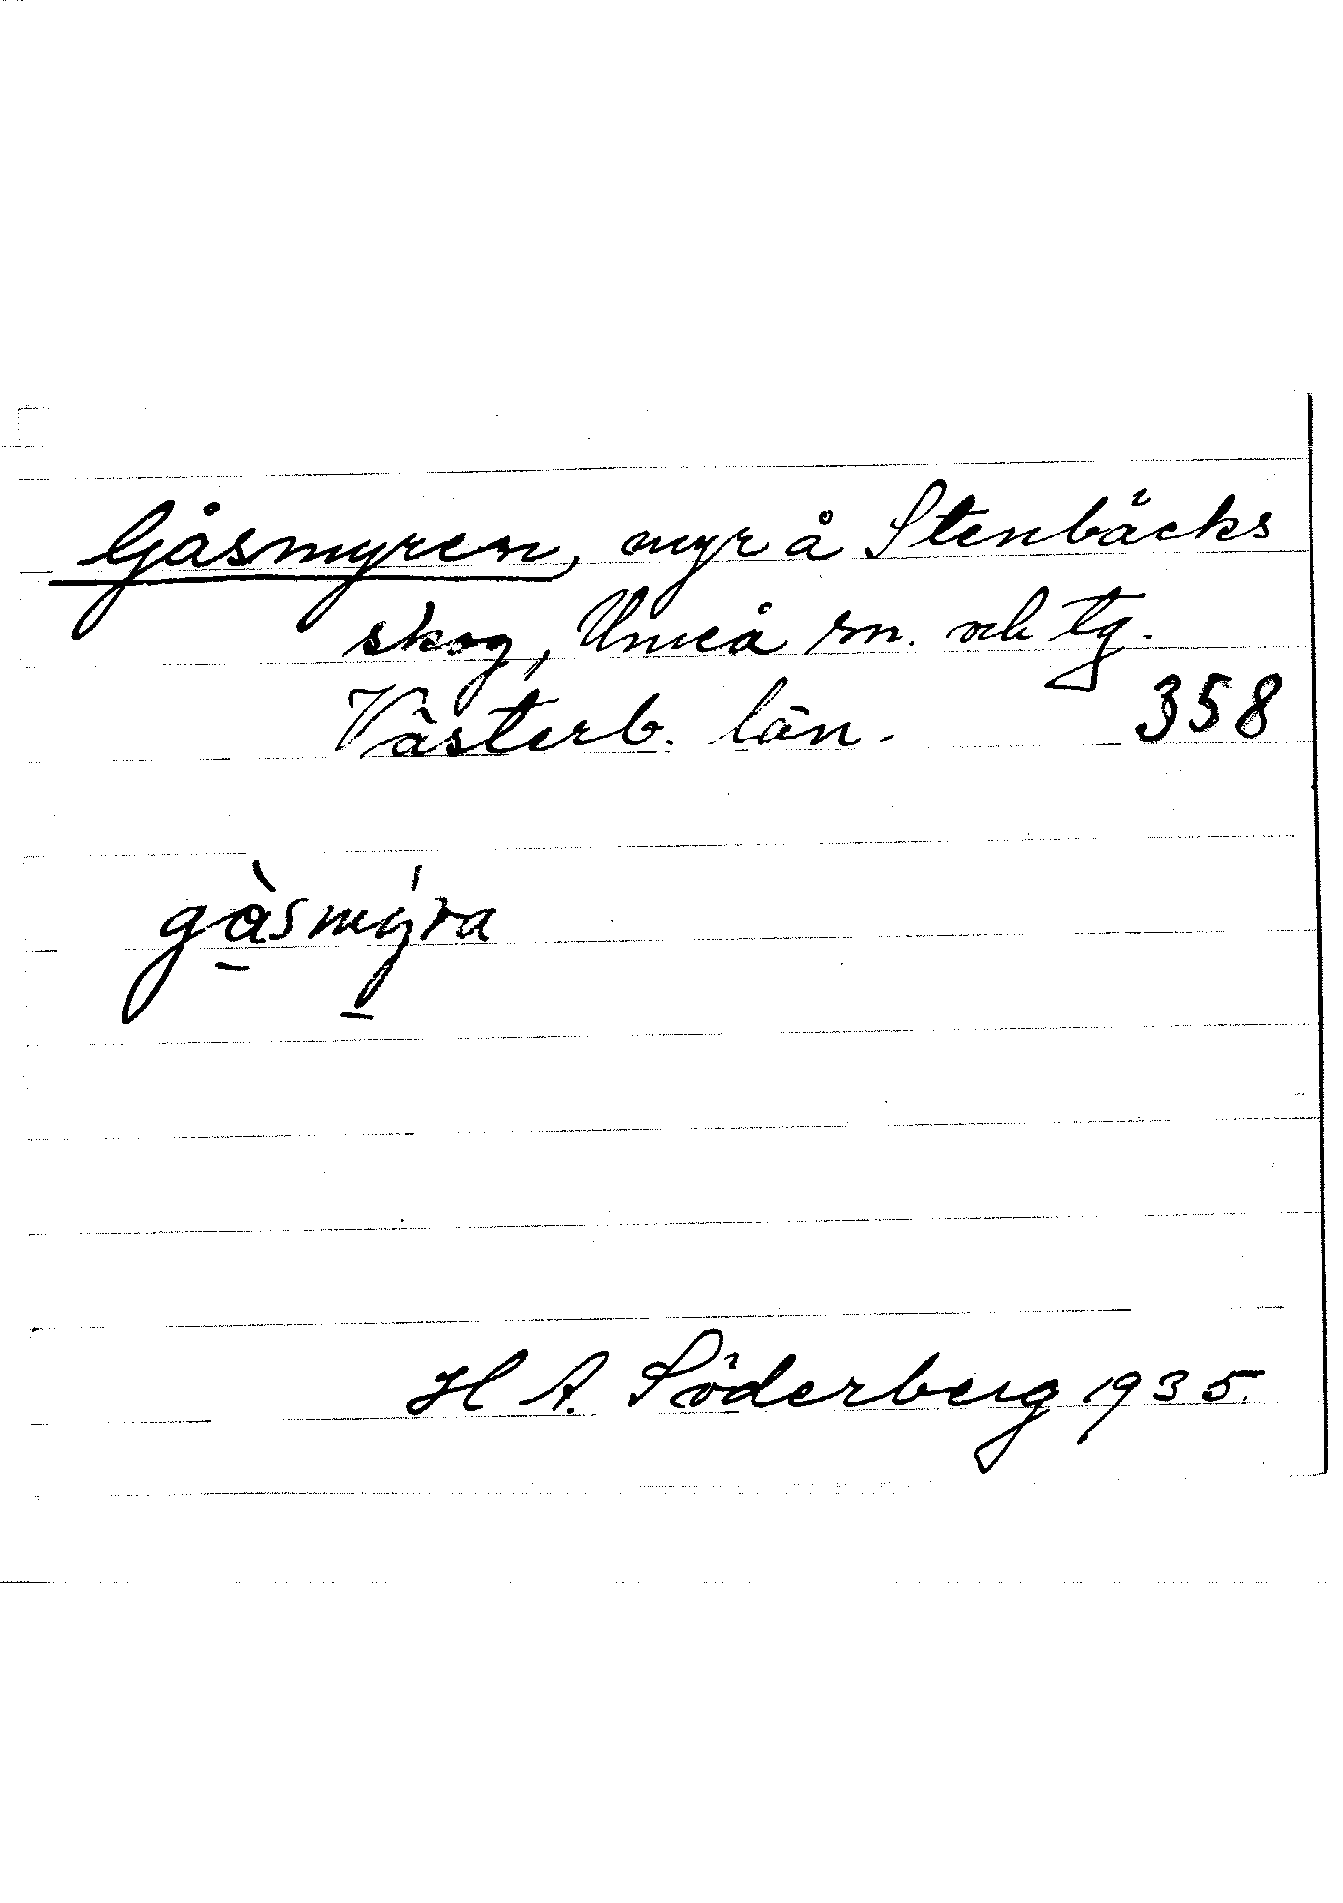 Gåsmyren, myr å Stenbäcks
skog, Umeå sn. och tg.
Västerb. län. 358
gàsmýra
H A. Söderberg 1935.